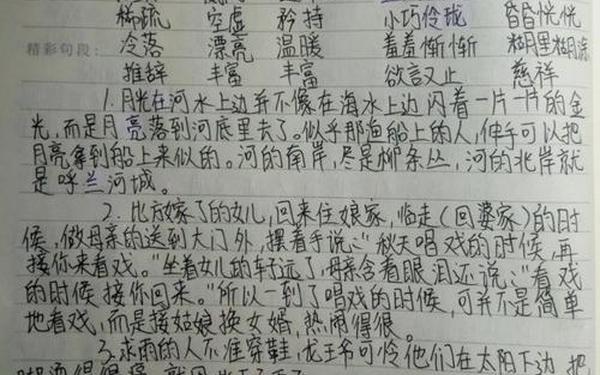 稀疏 空虚 矜持 小巧伶珑 昏昏恍恍
精彩句段: 冷落 漂亮 温暖 羞羞惭惭 糊里糊涂
推辞 丰富 丰富 欲言又止 慈祥
1.月光在河水上边并不像在海水上边闪着一片一片的金
光,而是月亮落到河底里去了。似乎那渔船上的人,伸手可以把
月亮拿到船上来似的。河的南岸,尽是柳条丛,河的北岸就
是呼兰河城。
2.比方嫁了的女儿,回来住娘家,临走(回婆家)的时
候,做母亲的送到大门外,摆着手说:“秋天唱戏的时候,再
接你来看戏。”坐着女儿的车子远了,母亲含着眼泪还说:“看戏
的时候接你回来。”所以一到了唱戏的时候,可并不是简单
地看戏,而是接姑娘换女婿,热闹得很。
3.求雨的人不准穿鞋,龙王爷可怜他们在太阳下边把